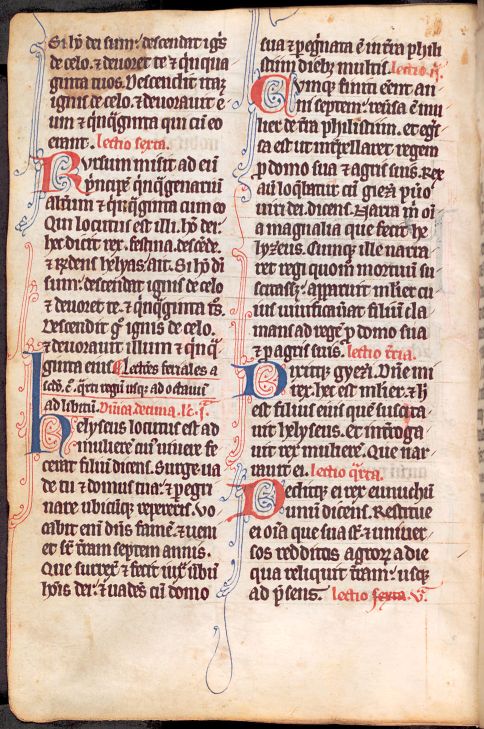 Si hō dei sum: descendat ignis
de celo. ⁊ deuoret te ⁊ qn̄qua
ginta tuos. Descendit itaq;
ignis de celo. ⁊ deuorauit e
um ⁊ qn̄q̄ginta qui cū eo
erant. lectio sexta.
Rursum misit ad eū
p̄ncipē qn̄q̄genariū
alt̄um ⁊ qn̄q̄ginta cum eo
Qui locutus est illi. hō dei:
hec dicit rex. festina. descēde.
⁊ rn̄dens helyas: ait. Si hō dī
sum: descendat ignis de celo
⁊ deuoret te. ⁊ qn̄q̄ginta t̄s.
Descendit gͦ ignis de celo.
⁊ deuorauit illum ⁊ qn̄q̄
ginta eius Lectōes feriales a
ad libitū. Dn̄ica decima. lc̄. p̄.
helyseus locutus est ad
muliere cui᷒ viuere fe
cerat filiū dicens. Surge ua
de tu ⁊ domus tua: ⁊ pegri
nare ubicūq; repereris. Vo
cabit eni dn̄s famē. ⁊ ueni
et sr̄ tr̄am septem annis.
Que surrex̄ ⁊ fecit iux̄ ūbū
hōis dei: ⁊ uadēs cū domo
sua ⁊ pegnata ē in tr̄a phili
stim dieb; multis. lectio ij.
Cumq; finiti eēnt an
ni septem: reūsa ē mu
lier de tr̄a philistim. et egr̄
sa est ut int̄pellaret regem
p domo sua ⁊ agris suis. Rex
aū loq̄batur cū giezi puͦo
uiri dei. dicens. Narra m̄ oī
a magnalia que fecit he
lyzeus. Cumq; ille narra
ret regi quom mortuū su
scitass;: apparuit mulier cu
ius uiuificauat filiū cla
mans ad regē p domo sua
⁊ p agris suis. lectio tr̄cia.
Dixitq; gyezi. Dn̄e mi
rex: hec est mulier. ⁊ h̄
est filius eius quē suscita
uit helyseus. Et int̄roga
uit rex mulierē. Que nar
rauit ei. lectio qr̄ta.
Deditq; ei rex eunuchū
unū dicens. Restitue
ei oīa que sua s̄t. ⁊ uniuer
sos redditus agror̄ a die
qua reliquit tr̄am: usq;
ad p̄sens. lectio sexta. V.